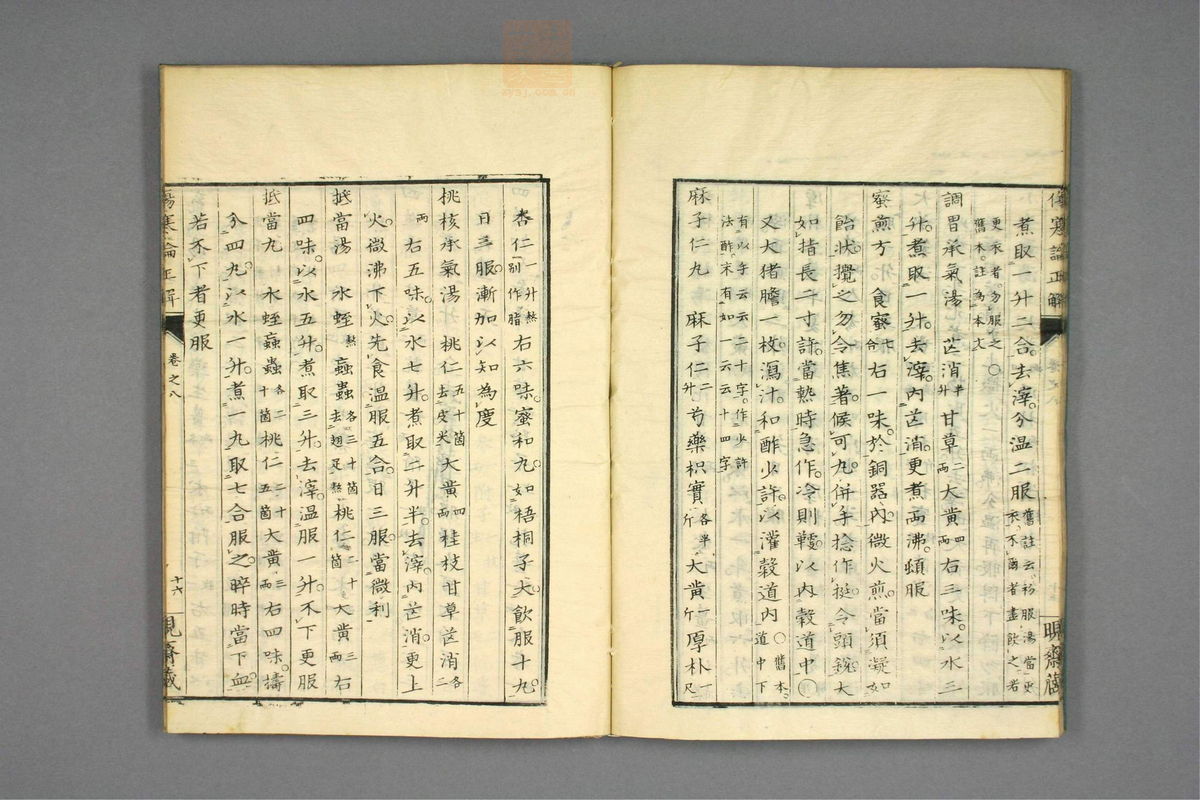 傷寒論正解
晛齋藏
煮取一升二合。去滓。分温二服舊註云。初服湯當更衣。不爾者盡飲之。若
更衣者。勿服之○舊本。註為本文
調胃承氣湯 芒消半升甘草二兩大黄四兩右三味。以水三
升。煮取一升。去滓。内芒消更煮兩沸。頓服
蜜煎方 食蜜七合右一味。於銅器内。微火煎。當須凝如
飴状。攪之勿令焦著。候可丸。併手捻作挺。令頭鋭。大
如指。長二寸許。當熱時急作。冷則鞕。以内穀道中。○
又大猪膽一枚。瀉汁。和酢少許。以灌穀道内○舊本。道中下
有以手云云二十字。作少許法酢。末有如一云云十四字
麻子仁丸 麻子仁二升芍藥枳實各半斤大黄一斤厚朴一尺
杏仁一升熬別作脂右六味。蜜和丸。如梧桐子大。飲服十丸。
日三服。漸加以知為度
桃核承氣湯 桃仁五十箇去皮尖大黄四兩桂枝甘草芒消各二
兩右五味。以水七升。煮取二升半。去滓。内芒消。更上
火。微沸下火。先食温服五合。日三服。當微利
抵當湯 水蛭熬蝱蟲各三十箇去翅足熬桃仁二十箇大黄三兩右
四味。以水五升。煮取三升。去滓。温服一升。不下更服
抵當丸 水蛭蝱蟲各二十箇桃仁二十五箇大黄三兩右四味。擣
分四丸。以水一升。煮一丸取七合服之。晬時當下血。
若不下者更服
傷寒論正解
卷之八
十六
晛齋藏